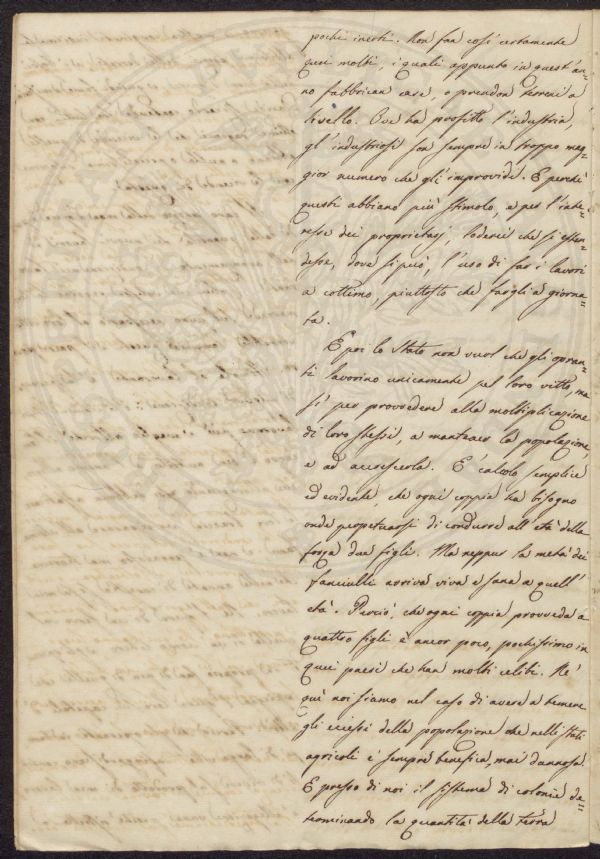 pochi inerti. Non fan così certamente
quei molti, i quali appunto in quest'an=
no fabbrican case, o prendon terreni a
livello. Ove ha profitto l'industria,
gl'industriosi son sempre in troppo mag=
gior numero che gl'improvidi. E perchè
questi abbiano più stimolo, e per l'inte=
resse dei proprietarj, loderei che si esten=
desse, dove si può, l'uso di far i lavori
a cottimo, piuttosto che fargli a giorna=
ta.
E poi lo Stato non vuol che gli opran=
ti lavorino unicamente pel loro vitto, ma
sì per provvedere alla moltiplicazione
di loro stessi, a mantener la popolazione,
e ad accrescerla. È calcolo semplice
ed evidente, che ogni coppia ha bisogno
onde perpetuarsi di condurre all'età della
forza due figli. Ma neppur la metà dei
fanciulli arriva viva e sana a quell'
età. Perciò, che ogni coppia provveda a
quattro figli è ancor poco, pochissimo in
quei paesi che han molti celibi. Nè
quì noi siamo nel caso di avere a temere
gli eccessi della popolazione che nelli stati
agricoli è sempre benefica, mai dannosa.
E presso di noi il sistema di colonie de=
terminando la quantità della terra